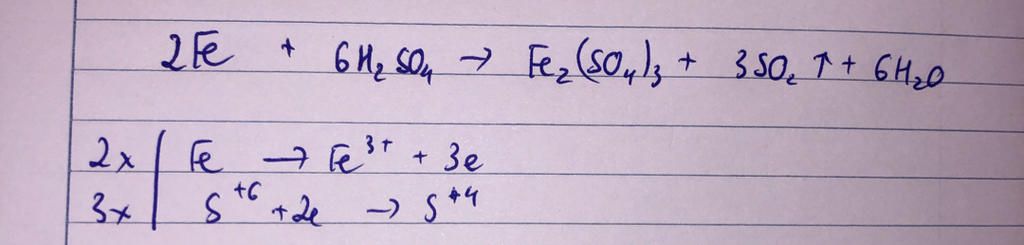 2Fe + 6H₂SO₄ → Fe₂(SO₄)₃ + 3SO₂ ↑ + 6H₂O
2x | Fe → Fe³⁺ + 3e
3x | S⁺⁶ + 2e → S⁺⁴